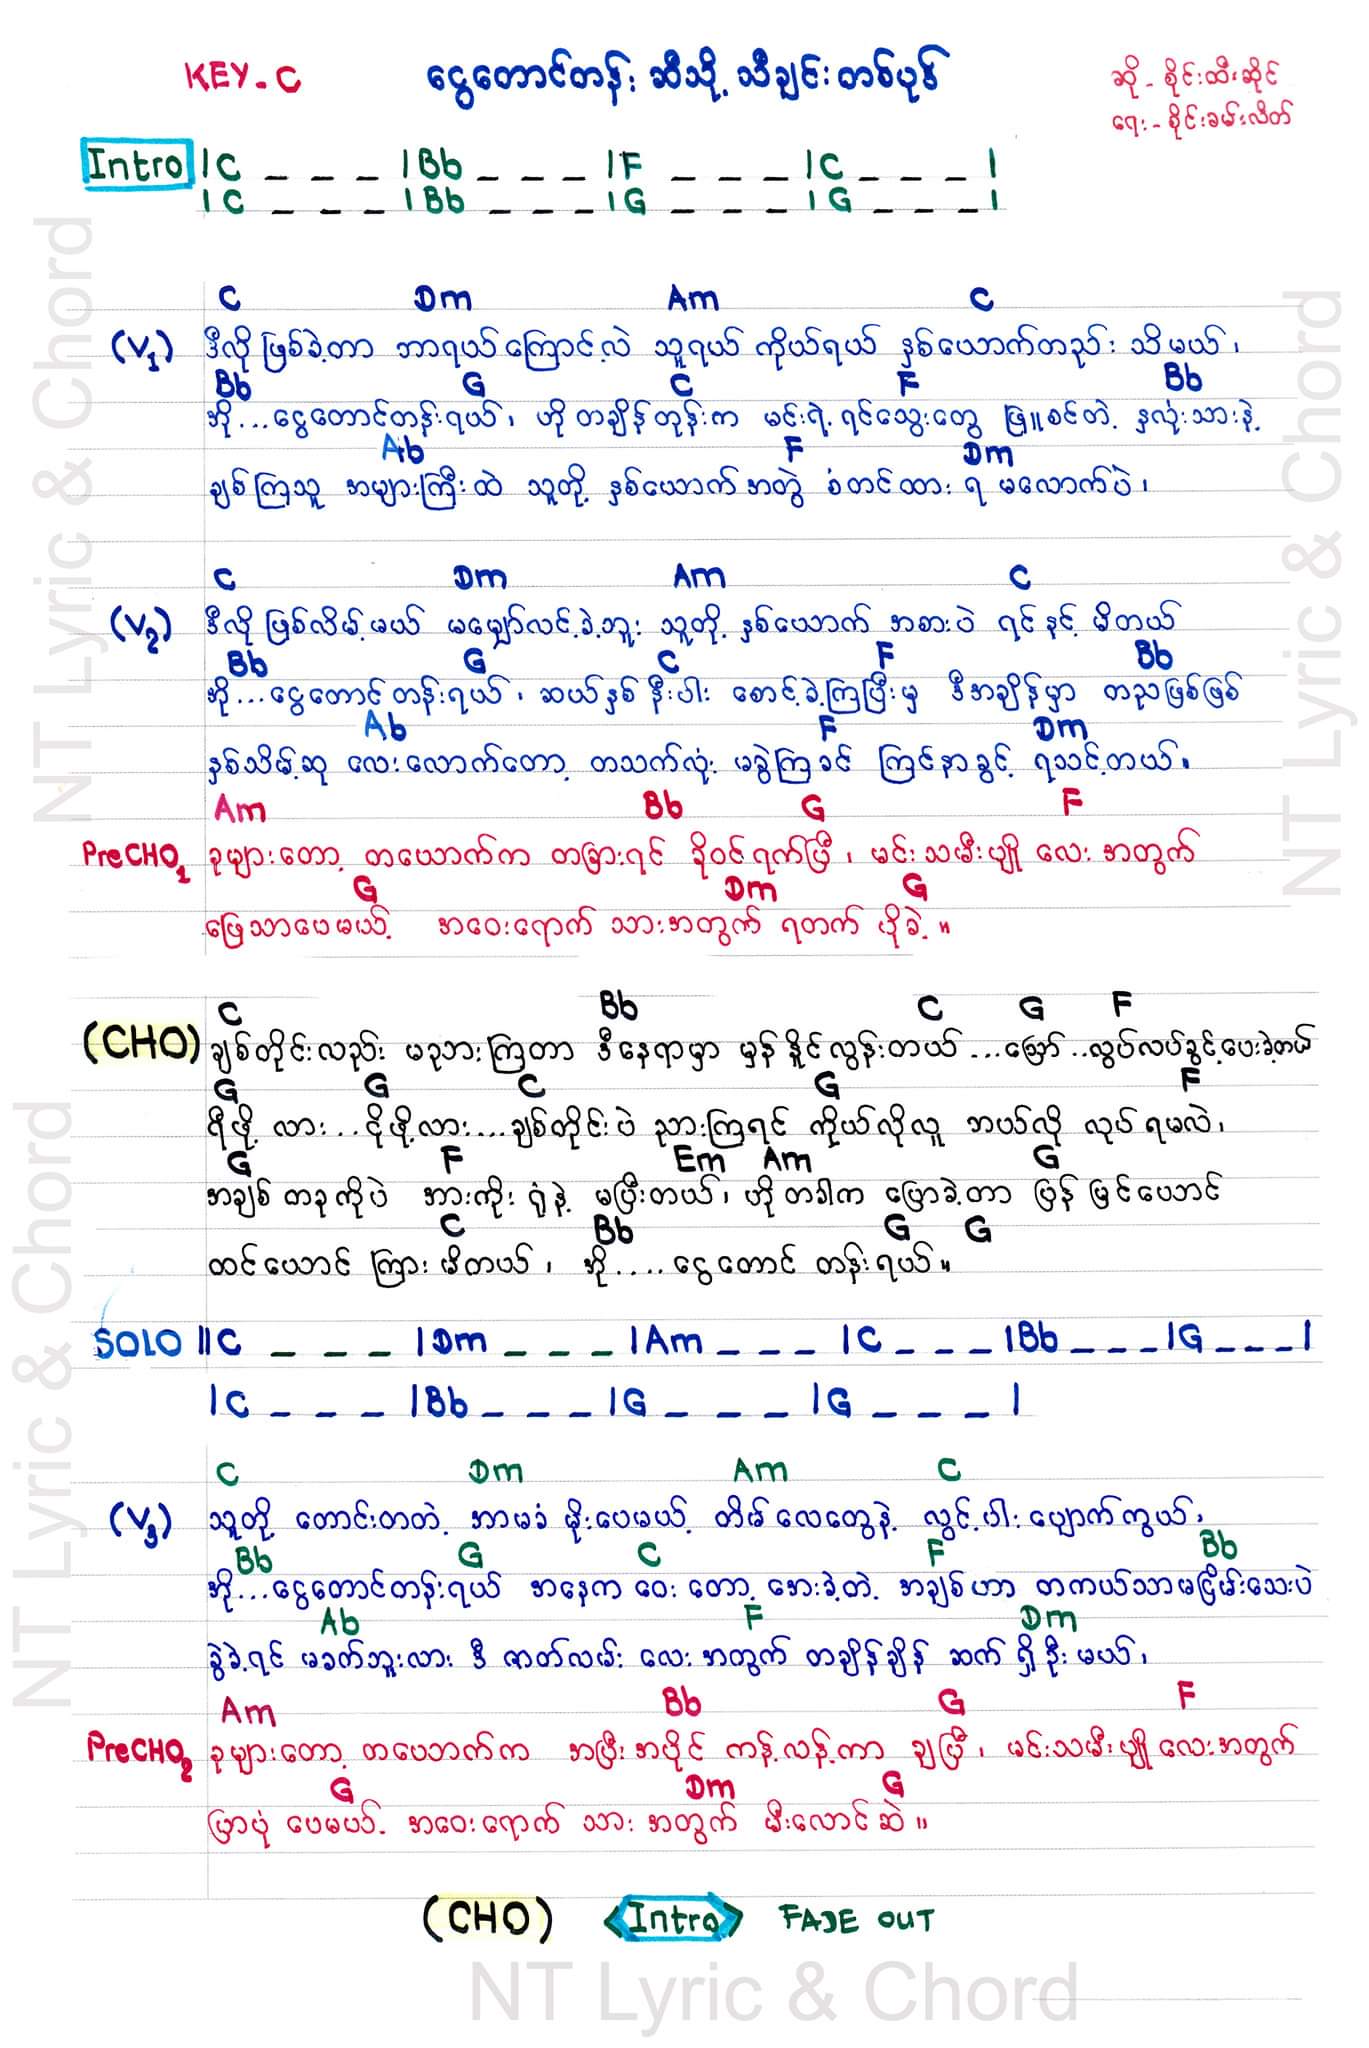 KEY-C ငွေတောင်တန်း ဆီသို့ သီချင်းတစ်ပုဒ် ဆို - စိုင်းထီးဆိုင်
ရေး - စိုင်းခမ်းလိတ်
Intro |C _ _ _ |Bb _ _ _ |F _ _ _ |C _ _ _ |
|C _ _ _ |Bb _ _ _ |G _ _ _ |G _ _ _ |
C Dm Am C
(V1) ဒီလို ဖြစ်ခဲ့တာ ဘာရယ်ကြောင့်လဲ သူရယ် ကိုယ်ရယ် နှစ်ယောက်တည်း သိမယ်၊
Bb G C F Bb
အို...ငွေတောင်တန်းရယ်၊ ဟို တချိန်တုန်းက မင်းရဲ့ ရင်သွေးတွေ ဖြူစင်တဲ့ နှလုံးသားနဲ့
Ab F Dm
ချစ်ကြသူ အများကြီးထဲ သူတို့ နှစ်ယောက်အတွဲ စံတင်ထား ရ မလောက်ပဲ၊
C Dm Am C
(V2) ဒီလို ဖြစ်လိမ့်မယ် မမျှော်လင့်ခဲ့ဘူး သူတို့ နှစ်ယောက် အစားပဲ ရင်နင့် မိတယ်
Bb G C F Bb
အို...ငွေတောင်တန်းရယ်၊ ဆယ်နှစ် နီးပါး စောင့်ခဲ့ကြပြီးမှ ဒီအချိန်မှာ တညဖြစ်ဖြစ်
Ab F Dm
နှစ်သိမ့်ဆု လေးလောက်တော့ တသက်လုံး မခွဲကြခင် ကြင်နာခွင့် ရသင့်တယ်။
Am Bb G F
PreCHO1 ခုများတော့ တယောက်က တခြားရင် ခိုဝင်ရက်ပြီ၊ မင်းသမီးပျိုလေးအတွက်
G Dm G
ဖြေသာပေမယ့် အဝေးရောက် သားအတွက် ရတက် ပိုခဲ့။
C Bb C G F
(CHO) ချစ်တိုင်းလည်း မညားကြတာ ဒီနေရာမှာ မှန်နိုင်လွန်းတယ်...သြော်..လွပ်လပ်ခွင့်ပေးခဲ့တယ်
G G C G F
ရီဖို့ လား...ငိုဖို့လား....ချစ်တိုင်းပဲ ညားကြရင် ကိုယ်လိုလူ ဘယ်လို လုပ်ရမလဲ၊
G F Em Am G
အချစ် တခုကိုပဲ အားကိုး ရုံနဲ့ မပြီးတယ်၊ ဟိုတခါက ပြောခဲ့တာ ပြန်မြင်ယောင်
C Bb G G
ထင်ယောင် ကြားမိတယ်၊ အို.... ငွေတောင် တန်းရယ်။
SOLO ||C _ _ _ |Dm _ _ _ |Am _ _ _ |C _ _ _ |Bb _ _ _ |G _ _ _ |
|C _ _ _ |Bb _ _ _ |G _ _ _ |G _ _ _ |
C Dm Am C
(V3) သူတို့ တောင်းတတဲ့ အာမခံ မိုးပေမယ့် တိမ်လေတွေနဲ့ လွင့်ပါးပျောက်ကွယ်၊
Bb G C F Bb
အို...ငွေတောင်တန်းရယ် အနေက ဝေးတော့ အေးခဲ့တဲ့ အချစ်ဟာ တကယ်သာမငြိမ်းသေးပဲ
Ab F Dm
ခွဲခဲ့ရင် မခက်ဘူးလား ဒီ ဇာတ်လမ်း လေးအတွက် တချိန်ချိန် ဆက် ရှိဦးမယ်၊
Am Bb G F
PreCHO2 ခုများတော့ တဖက်က အပြီးအပိုင် ကန့်လန့်ကာ ချပြီ၊ မင်းသမီးပျိုလေးအတွက်
G Dm G
ပြာပုံ ပေမယ့် အဝေးရောက် သားအတွက် မီးလောင်ဆဲ။
(CHO) Intro FADE OUT
NT Lyric & Chord
NT Lyric & Chord
NT Lyric & Chord
NT Lyric & Chord